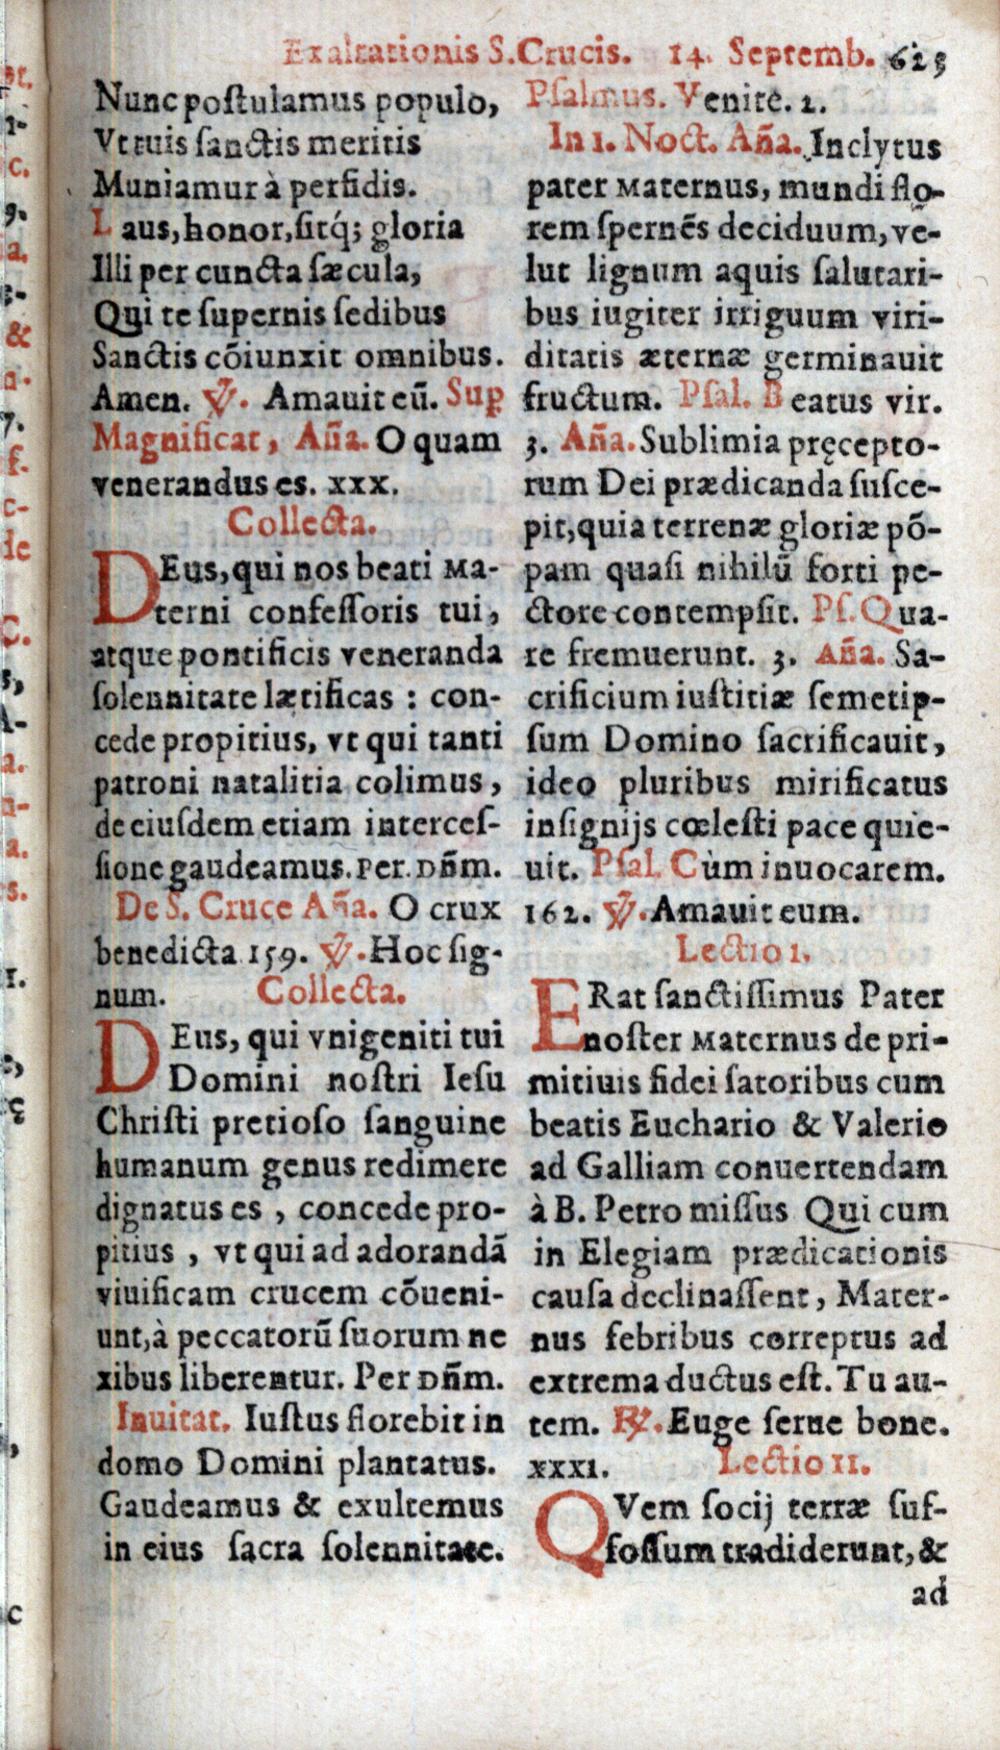 Exaltationis S. Crucis. 14. Septemb. 625
Nunc poſtulamus populo,
Vt tuis ſanctis meritis
Muniamur à perfidis.
Laus, honor, ſitq́; gloria
Illi per cuncta ſæcula,
Qui te ſupernis ſedibus
Sanctis cõiunxit omnibus.
Amen. ℣. Amauit eũ. Sup
Magnificat, Aña. O quam
venerandus es. xxx.
Collecta.
DEus, qui nos beati Ma-
terni confeſſoris tui,
atque pontificis veneranda
ſolennitate lætificas : con-
cede propitius, vt qui tanti
patroni natalitia colimus,
de eiuſdem etiam interceſ-
ſione gaudeamus. Per. Dñm.
De S. Cruce Aña. O crux
benedicta 159. ℣. Hoc ſig-
num. Collecta.
DEus, qui vnigeniti tui
Domini noſtri Ieſu
Chriſti pretioſo ſanguine
humanum genus redimere
dignatus es, concede pro-
pitius, vt qui ad adorandã
viuificam crucem cõueni-
unt, à peccatorũ ſuorum ne
xibus liberentur. Per Dñm.
Inuitat. Iuſtus florebit in
domo Domini plantatus.
Gaudeamus & exultemus
in eius ſacra ſolennitate.
Pſalmus. Venite. 2.
In 1. Noct. Aña. Inclytus
pater Maternus, mundi flo-
rem ſpernẽs deciduum, ve-
lut lignum aquis ſalutari-
bus iugiter irriguum viri-
ditatis æternæ germinauit
fructum. Pſal. Beatus vir.
3. Aña. Sublimia pręcepto-
rum Dei prædicanda ſuſce-
pit, quia terrenæ gloriæ põ-
pam quaſi nihilũ forti pe-
ctore contempſit. Pſ. Qua-
re fremuerunt. 3. Aña. Sa-
crificium iuſtitiæ ſemetip-
ſum Domino ſacrificauit,
ideo pluribus mirificatus
inſignijs cœleſti pace quie-
uit. Pſal. Cùm inuocarem.
162. ℣. Amauit eum.
Lectio 1.
ERat ſanctiſſimus Pater
noſter Maternus de pri-
mitiuis fidei ſatoribus cum
beatis Euchario & Valerio
ad Galliam conuertendam
à B. Petro miſſus Qui cum
in Elegiam prædicationis
cauſa declinaſſent, Mater-
nus febribus correptus ad
extrema ductus eſt. Tu au-
tem. ℟. Euge ſerue bone.
xxxı. Lectio II.
QVem ſocij terræ ſuf-
foſſum tradiderunt, &
ad